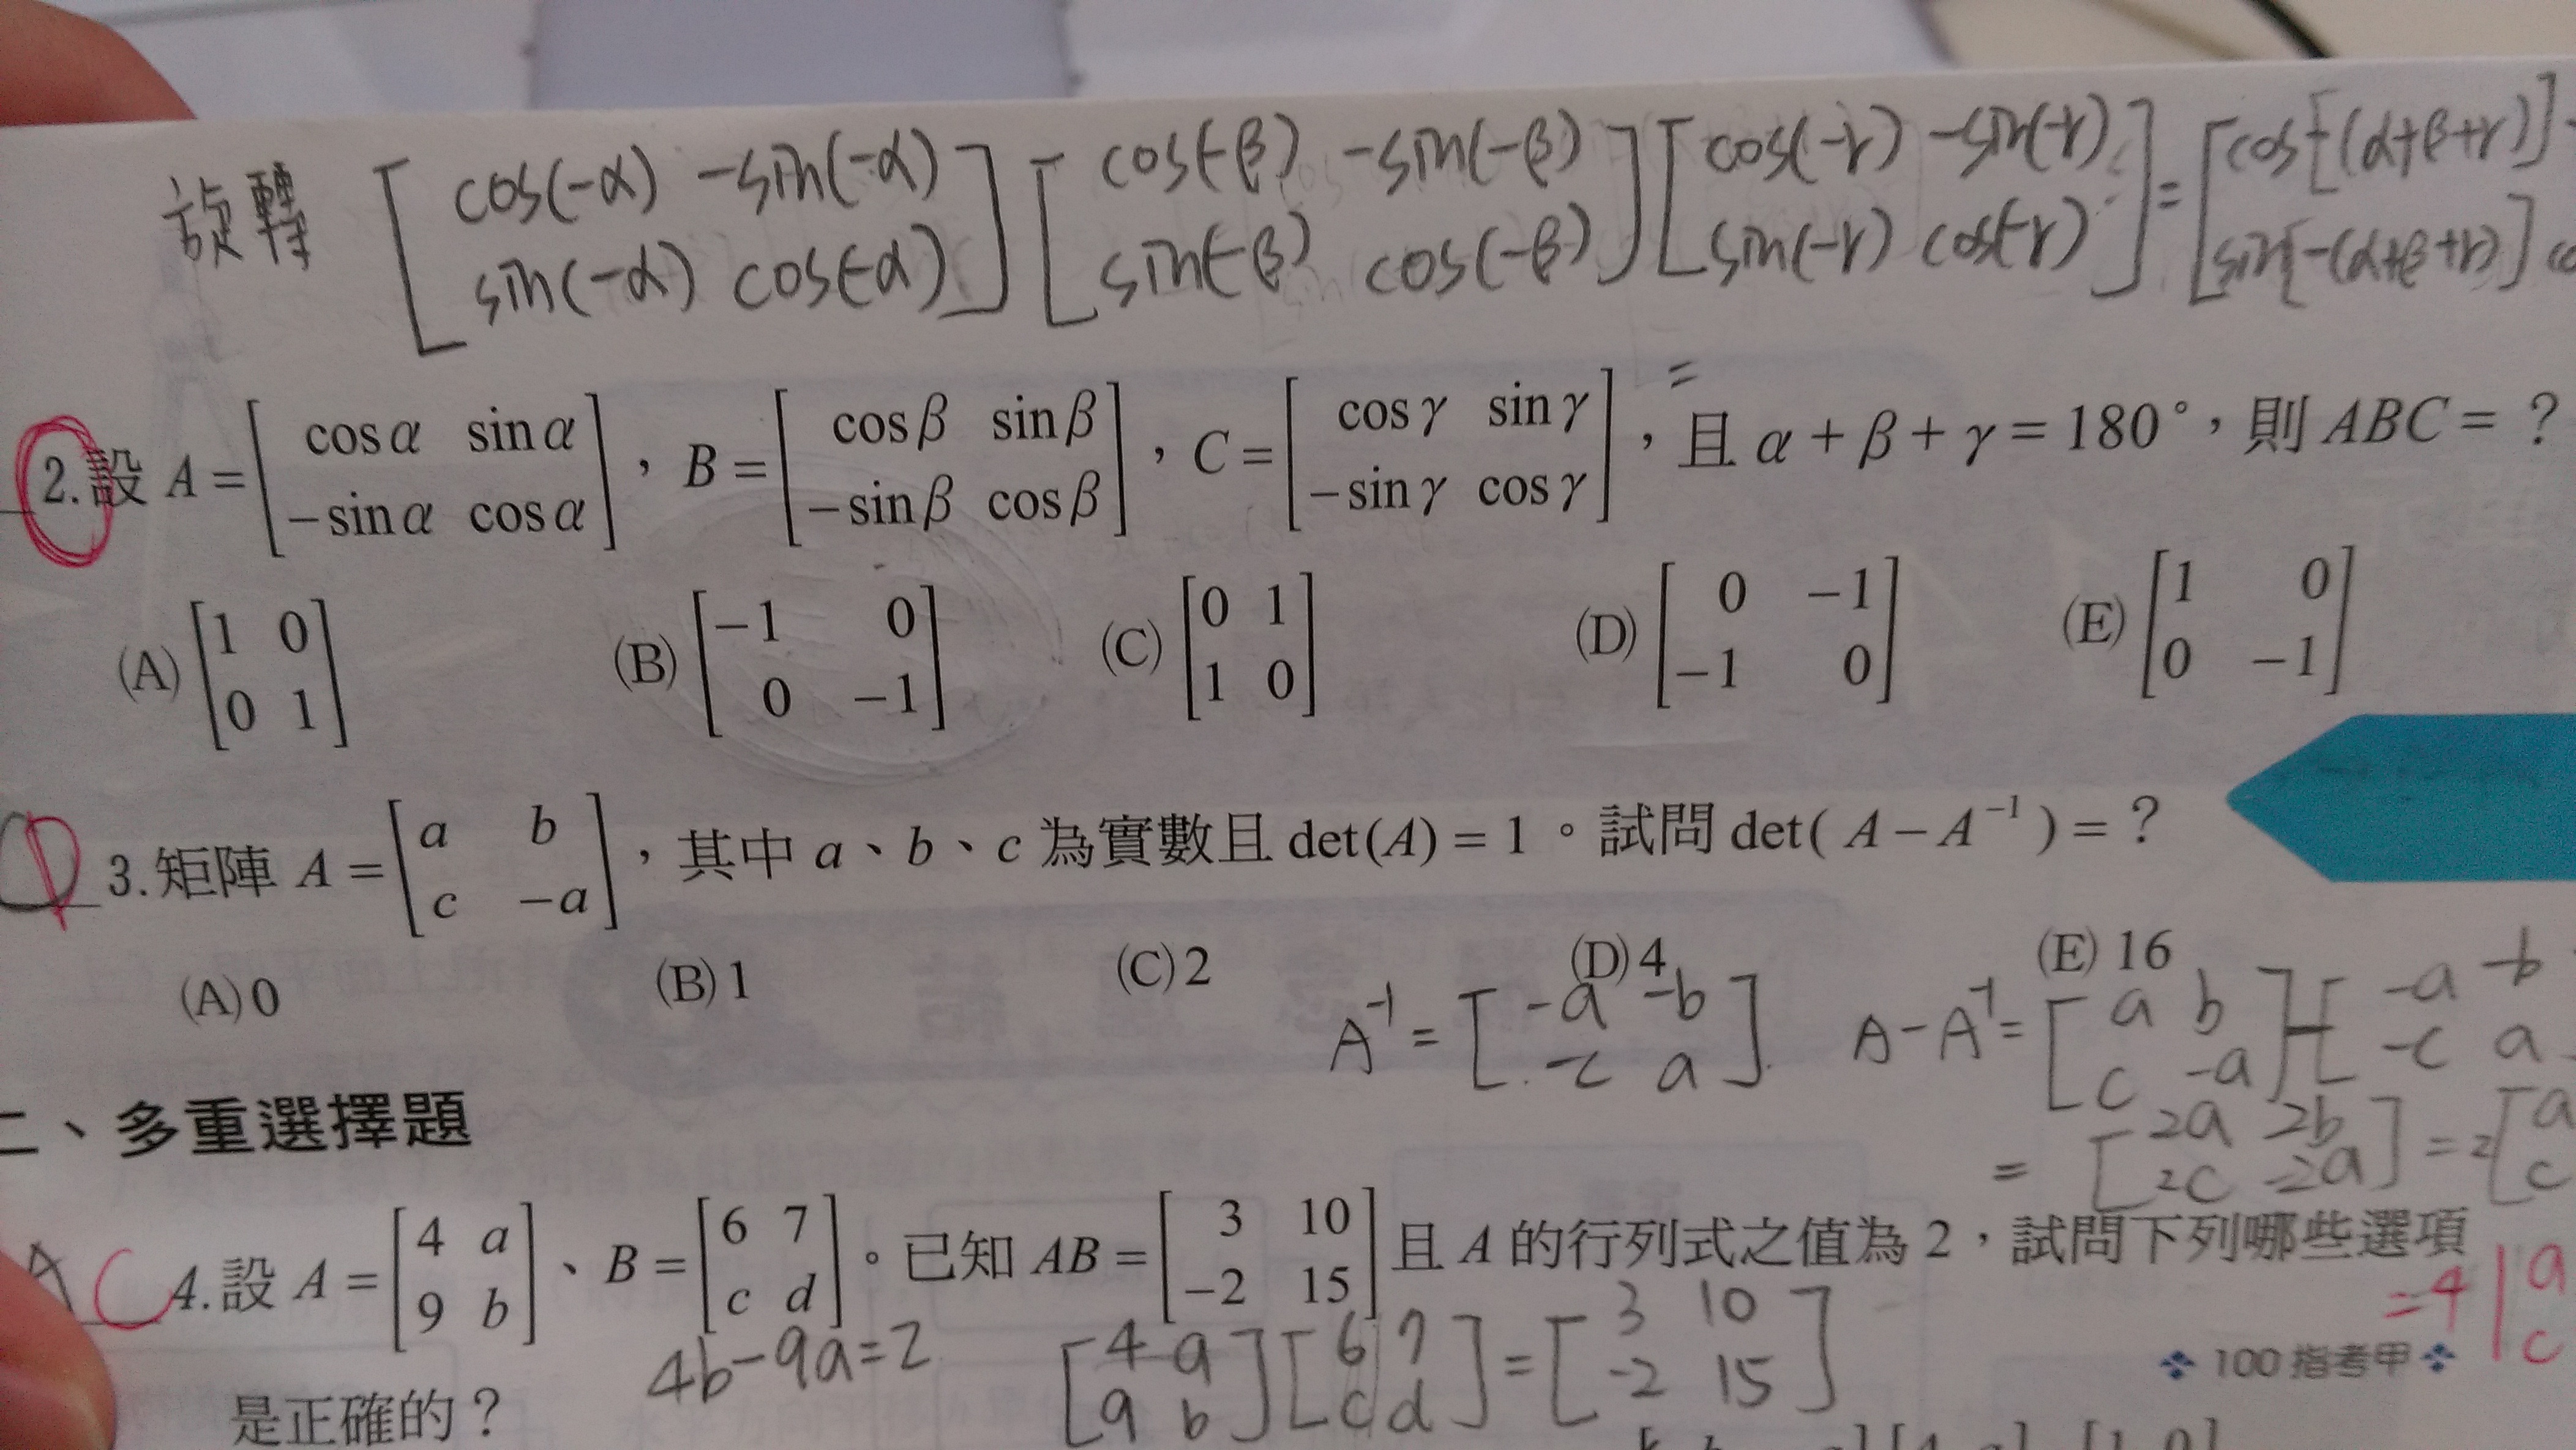 旋轉 [cos(-α) -sin(-α) [cos(-β) -sin(-β) [cos(-γ) -sin(-γ) = [cos[-(α+β+γ)]
sin(-α) cos(-α)] sin(-β) cos(-β)] sin(-γ) cos(-γ)] sin[-(α+β+γ)]
=
2.設 A = [cosα sinα; -sinα cosα],B = [cosβ sinβ; -sinβ cosβ],C = [cosγ sinγ; -sinγ cosγ],且 α + β + γ = 180°,則 ABC = ?
(A)[1 0; 0 1] (B)[-1 0; 0 -1] (C)[0 1; 1 0] (D)[0 -1; -1 0] (E)[1 0; 0 -1]
D 3.矩陣 A = [a b; c -a],其中 a、b、c 為實數且 det(A) = 1。試問 det( A - A⁻¹ ) = ?
(A) 0 (B) 1 (C) 2 (D) 4 (E) 16
A⁻¹ = [-a -b; -c a] A - A⁻¹ = [a b; c -a] - [-a -b; -c a
= [2a 2b; 2c -2a] = 2[a; c
二、多重選擇題
AC 4.設 A = [4 a; 9 b]、B = [6 7; c d]。已知 AB = [3 10; -2 15] 且 A 的行列式之值為 2,試問下列哪些選項
=4|a; c
4b-9a=2 [4 a; 9 b][6 7; c d] = [3 10; -2 15]
是正確的?
100 指考甲